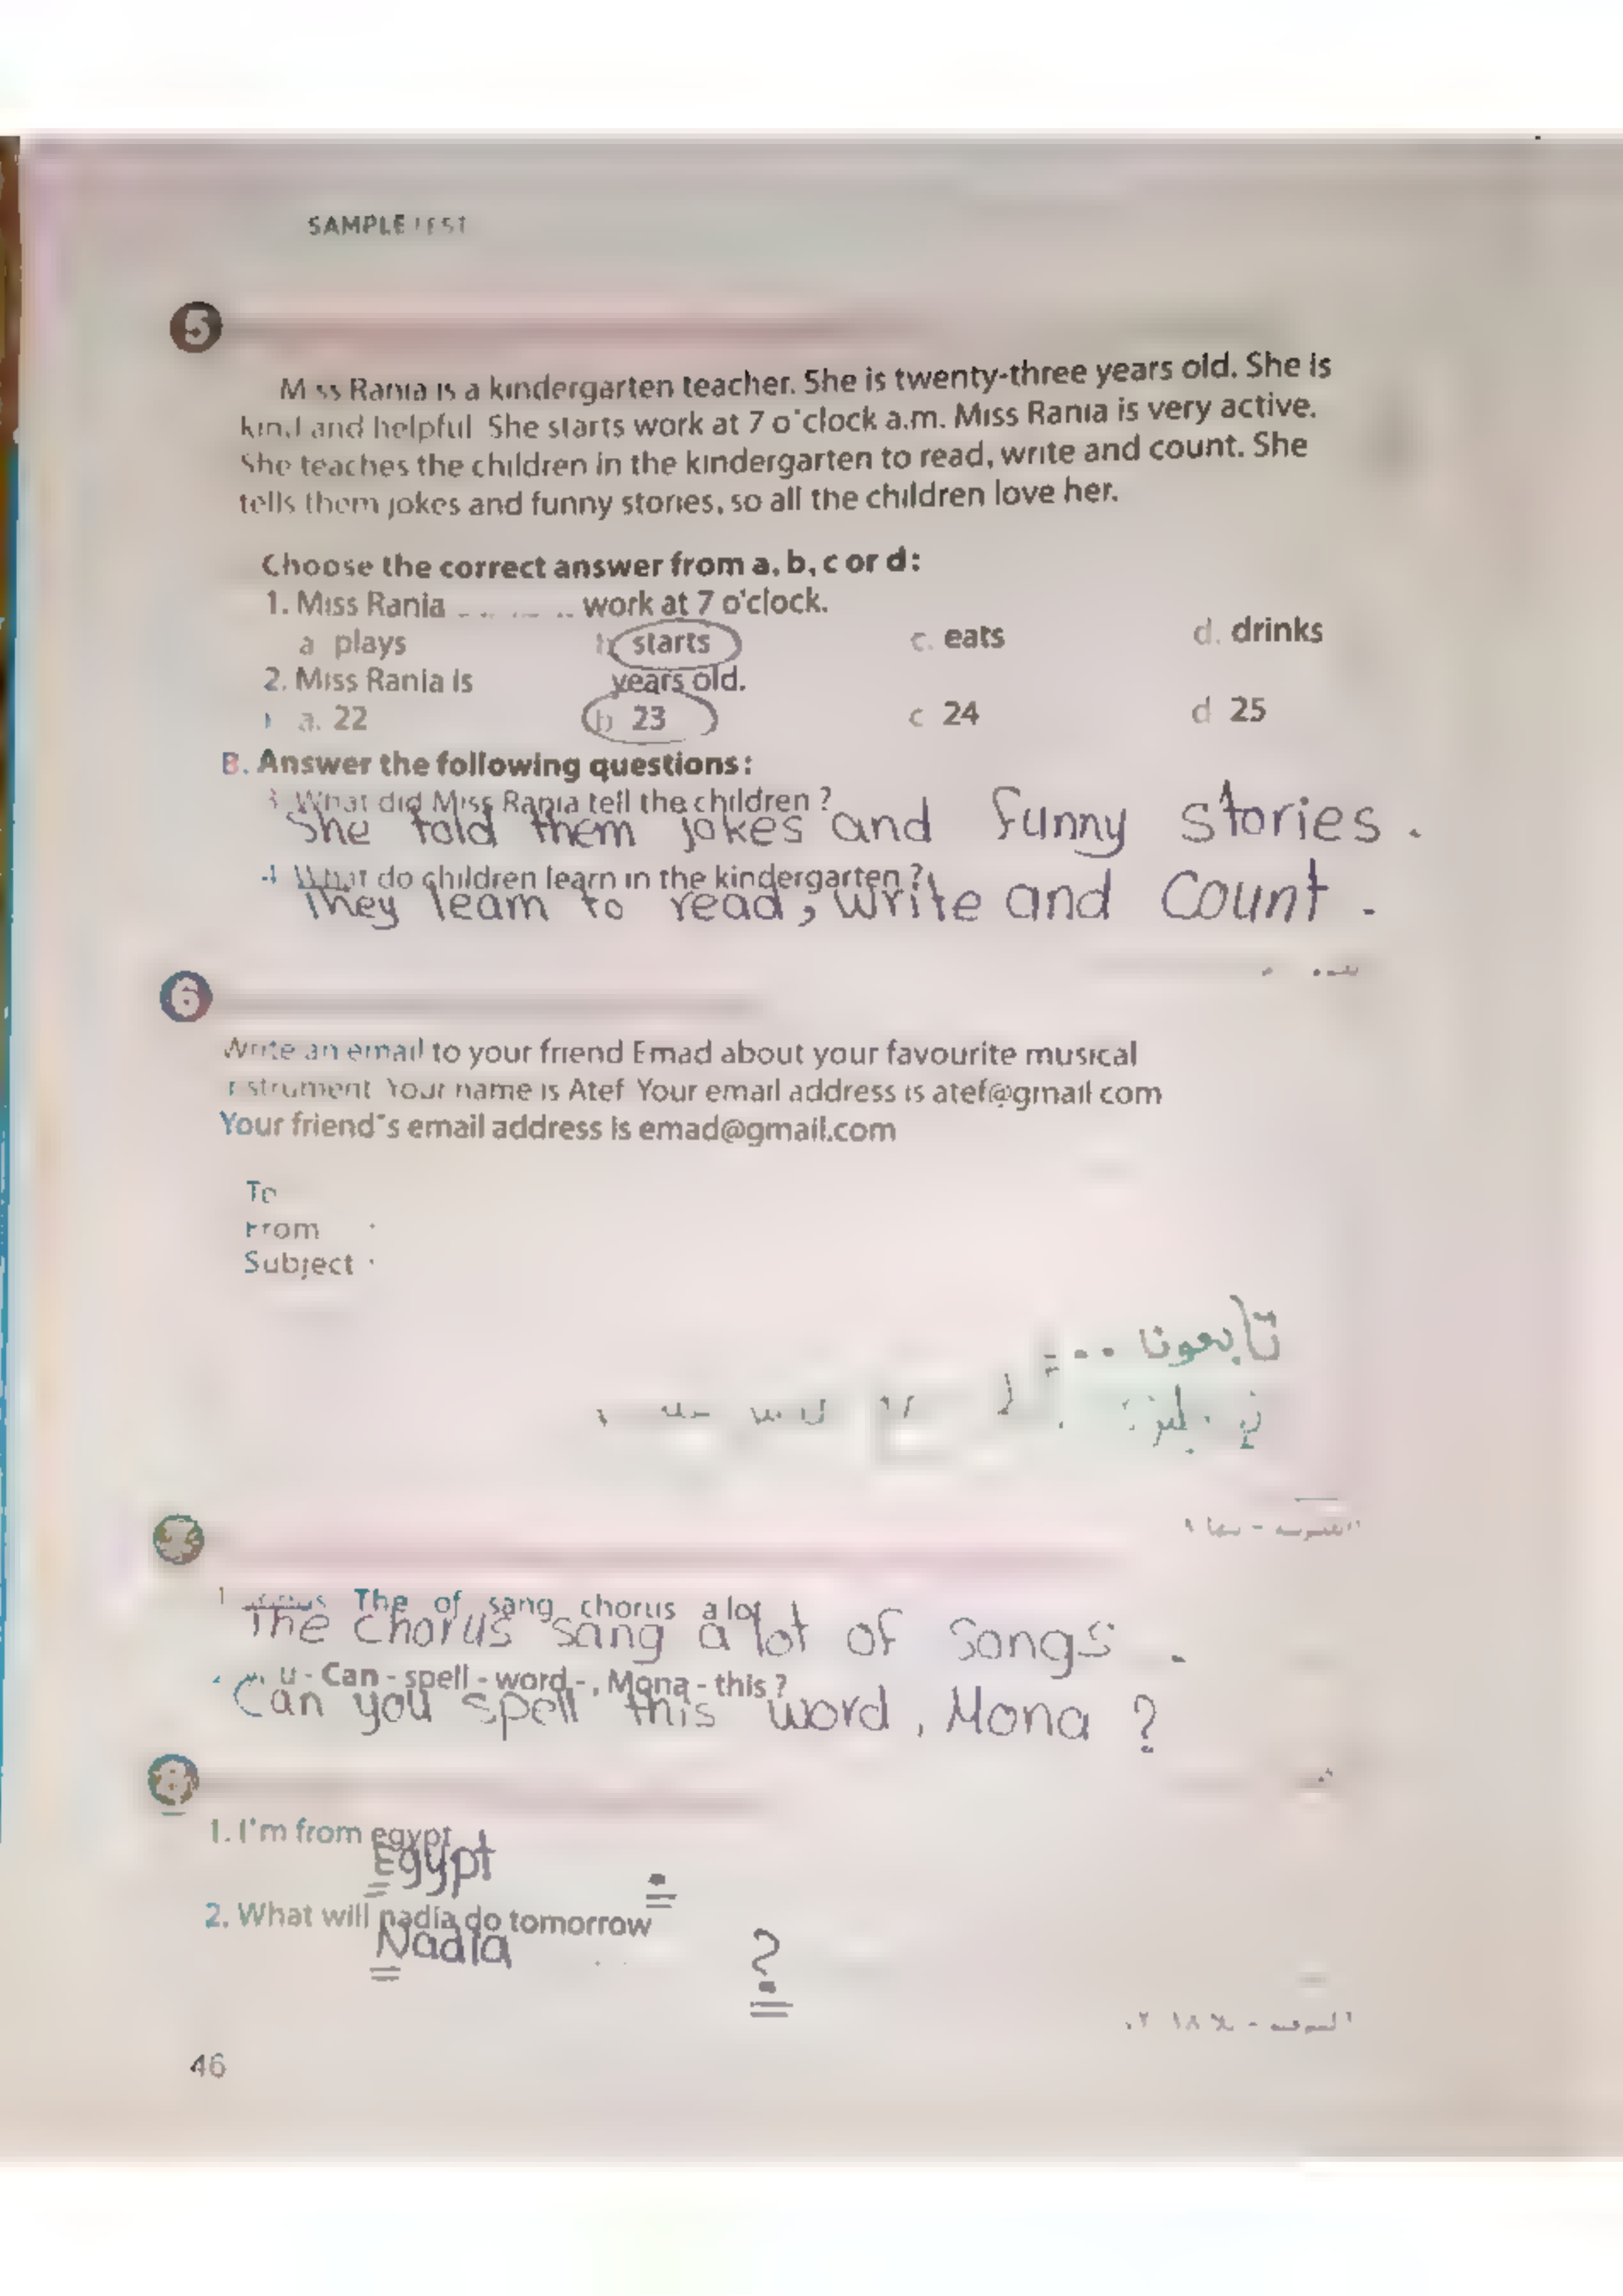 SAMPLE TEST
5
Miss Rania is a kindergarten teacher. She is twenty-three years old. She is
kind and helpful She starts work at 7 o'clock a.m. Miss Rania is very active.
She teaches the children in the kindergarten to read, write and count. She
tells them jokes and funny stories, so all the children love her.
Choose the correct answer from a, b, c or d:
1. Miss Rania ........ work at 7 o'clock.
a plays b starts c. eats d. drinks
2. Miss Rania is years old.
a. 22 b 23 c 24 d 25
B. Answer the following questions:
3 What did Miss Rania tell the children ?
She told them jokes and funny stories.
4 What do children learn in the kindergarten ?
They learn to read, write and count.
6
Write an email to your friend Emad about your favourite musical
instrument Your name is Atef Your email address is atef@gmail com
Your friend's email address is emad@gmail.com
To
From :
Subject :
تابعونا ..
1 The of sang chorus a lot
The chorus sang a lot of songs.
u - Can - spell - word - , Mona - this ?
Can you spell this word, Mona ?
8
1. I'm from egypt
Egypt .
2. What will nadia do tomorrow
Nadia ?
46